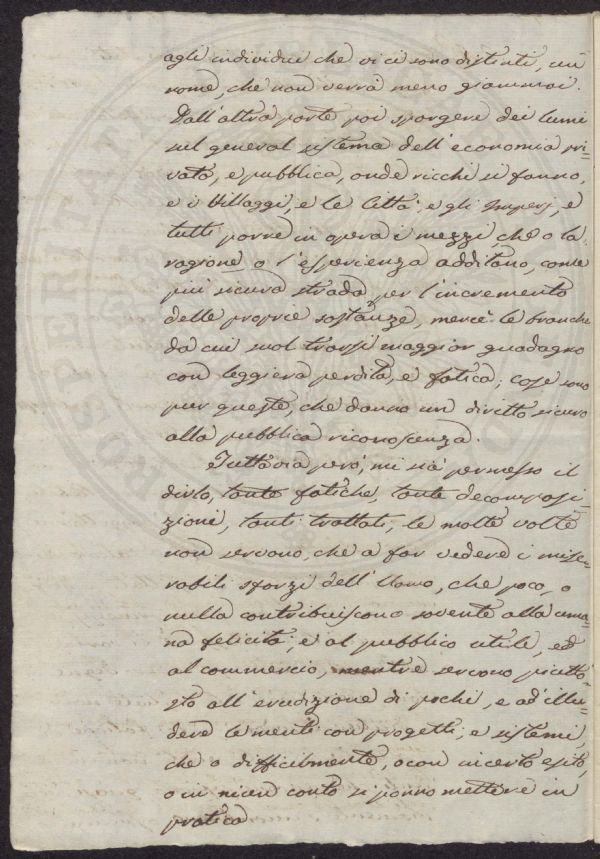 agli individui che vi ci sono distinti, un
nome, che non verrà meno giammai.
Dall'altra parte poi sporgere dei lumi
sul general sistema dell'economia pri=
vata, e pubblica, onde ricchi si fanno,
e i Villaggi, e le Città, e gli Imperj, e
tutti porre in opera i mezzi, che o la
ragione o l'esperienza additano, come
più sicura strada per l'incremento
delle proprie sostanze, mercè le branche
da cui suol trarsi maggior guadagno
con leggiera perdita, e fatica; cose sono
pur queste, che danno un diritto sicuro
alla pubblica riconoscenza.
Tuttavia però, mi sia permesso il
dirlo, tante fatiche, tante decomposi=
zioni, tanti trattati, le molte volte
non servono, che a far vedere i mise=
rabili sforzi dell'Uomo, che poco, o
nulla contribuiscono sovente alla uma=
na felicità, e al pubblico utile, ed
al commercio, mentre servono piutto=
sto all'erudizione di pochi, e ad illu=
dere le menti con progetti, e sistemi,
che o difficilmente, o con incerto esito,
o in niun conto si ponno mettere in
pratica
PROSPERITATI